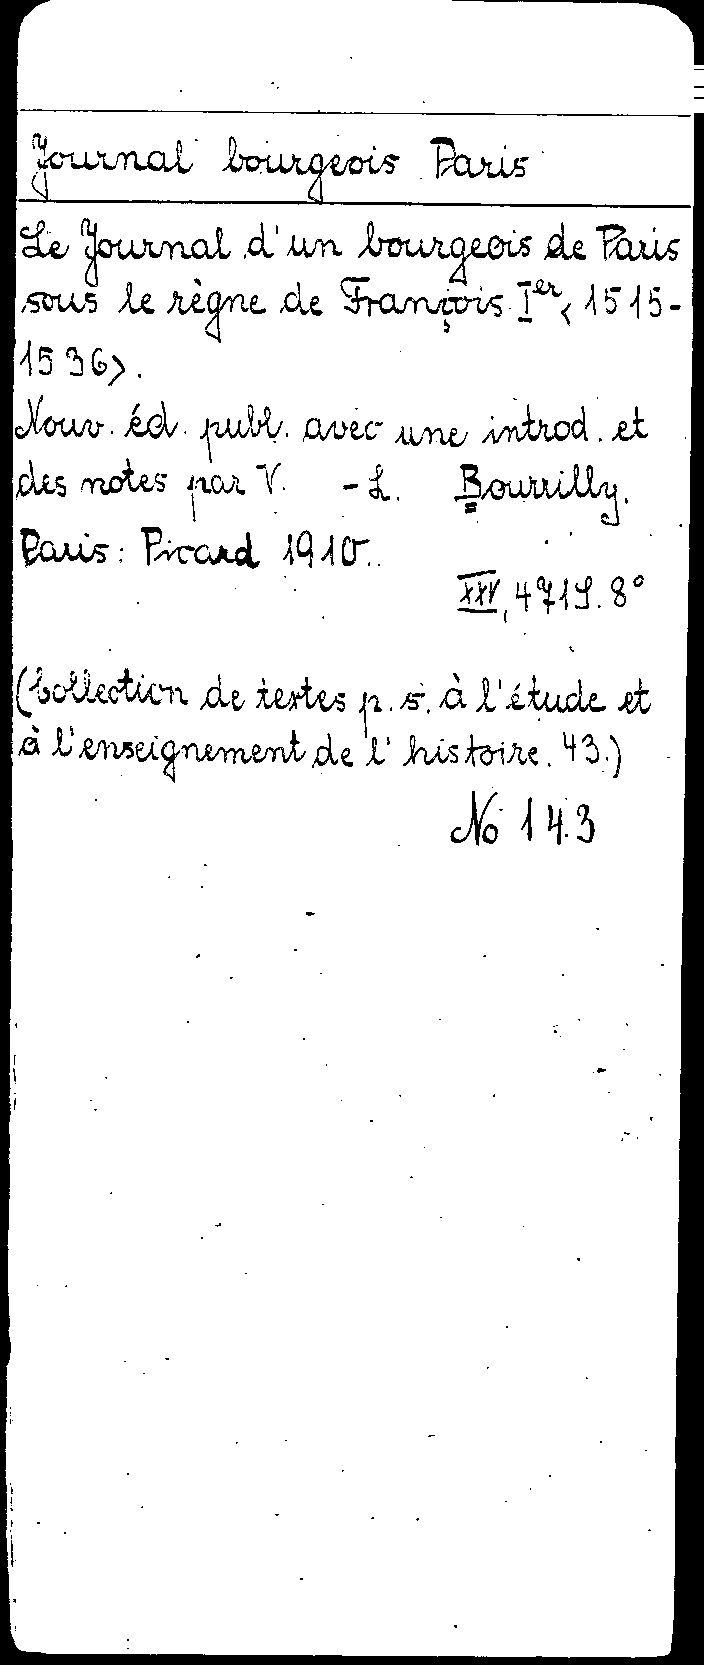 Journal bourgeois Paris
Le Journal d'un bourgeois de Paris
sous le règne de François Ier <1515-
1536>.
Nouv. éd. publ. avec une introd. et
des notes par V. -L. Bourrilly.
Paris: Picard 1910.
XXV, 471 S. 8°
(Collection de textes p. s. à l'étude et
à l'enseignement de l'histoire. 43.)
No 143